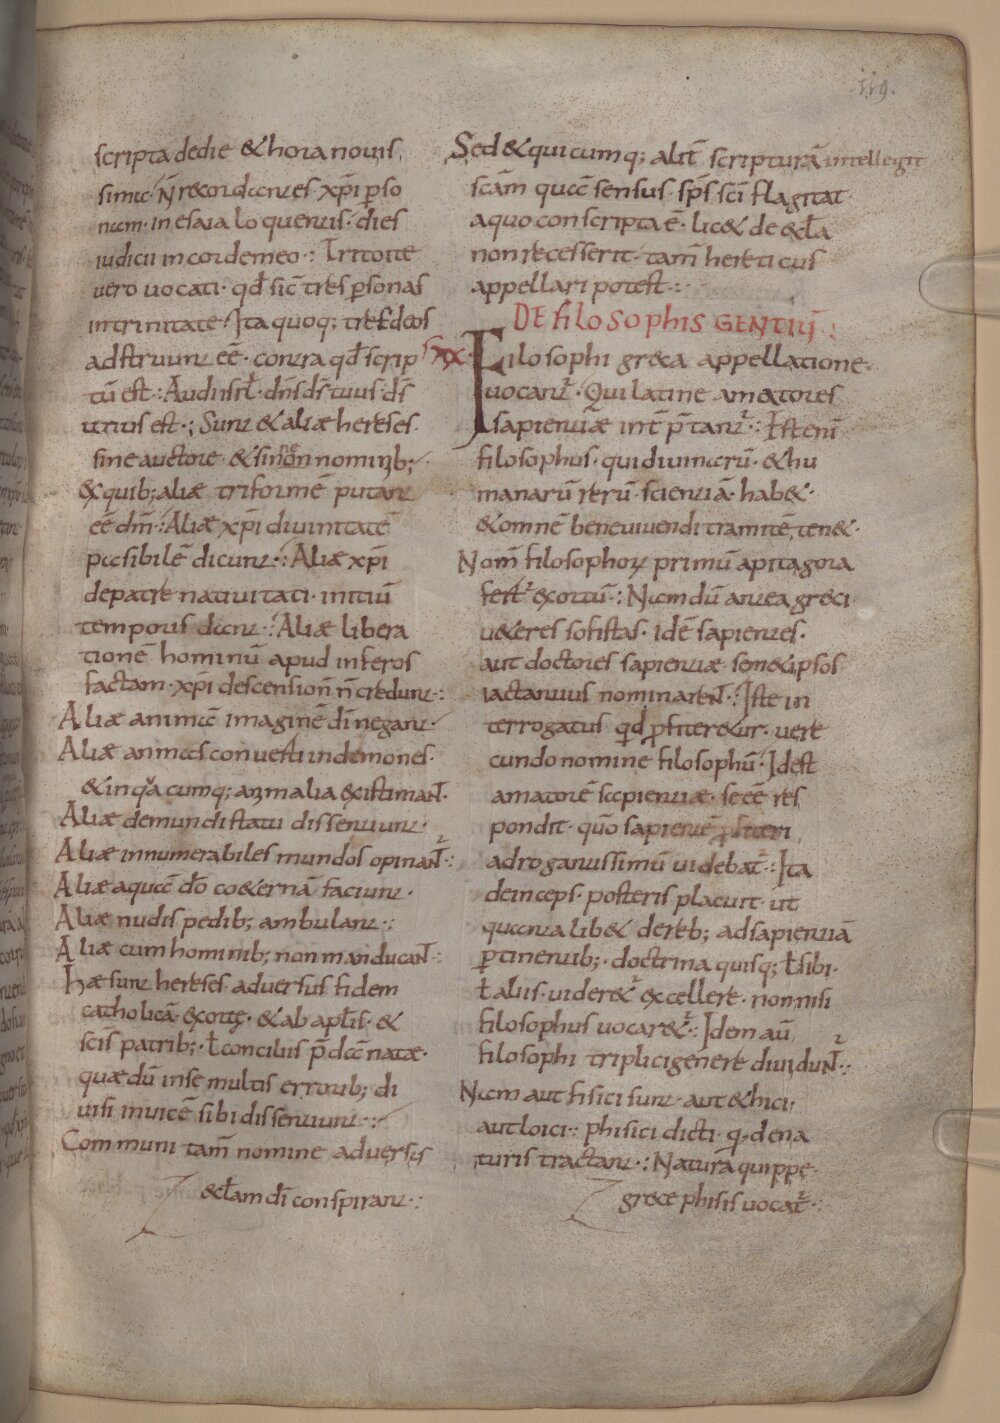 119.
scripta dedie & hora novis
sima. n̄ recordantes xp̄i p̱so
nam. in esaia loquentis. dies
iudicii in corde meo.: Tritoite
vero vocati. qđ sic̄ tres p̱sonas
in trinitate. Ita quoq; tres deos
adstruunt eē. contra qđ scrip
tū est.: Audi isrł. dn̄s ds̄ tuus ds̄
unus est.; Sunt & aliæ hereses
sine auctore. & sine nominib;
ex quib; aliæ triformē putant
eē dm̄.: Aliæ xp̄i divinitatē
passibilē dicunt.: Aliæ xp̄i
de patre nativitati. initiū
temporis dant.: Aliæ libera
tionē hominū apud inferos
factam. xp̄i descension̄ n̄ credunt.:
Aliæ animæ imaginē dī negant.
Aliæ animas converti in demones.
& in q̌acumq; animalia existimant̄.
Aliæ de mundi statu dissentiunt.
Aliæ innumerabiles mundos opinant̄.:
Aliæ aquā dō coæternā faciunt.
Aliæ nudis pedib; ambulant.:
Aliæ cum hominib; non manducant̄.:
Hæ sunt hereses. adversus fidem
catholicā. exortę. & ab apłis. &
scīs patrib;. ł conciliis p̄dānatæ.
quæ dū in se multis errorib; di
visi invicē sibi dissentiunt.:
Communi tam̄ nomine adversus
ecłam dī conspirant.:
Sed & quicumq; alit̄ scripturā intellegit
scām quā sensus. sp̄s scī flagitat.
a quo conscripta ē. lic& de ecła
non recesserit. tam̄ hereticus
appellari potest.:
DE filosophis GENTIŪ.:
xx.
Filosophi greca appellatione.
vocant̄. Qui latine amatores
sapientiæ int̄p̄tant̄.: Est enī
filosophus. qui divinarū. & hu
manarū rerū. scientiā. hab&.
& omnē bene vivendi tramitē ten&.
Nom̄ filosophoꝝ primū a pitagora
fert̄ exortū.: Nam dū antea greci
veteres sofistas. idē sapientes.
aut doctores sapientiæ semetipsos
iactantius nominarent̄.: Iste in
terrogatus qd p̱fiteretur. vere
cundo nomine filosophū. Idest
amatorē sapientiæ. se eē res
pondit. qūo sapientē p̱fiteri
adrogantissimū videbat̄.: Ita
deinceps. posteris placuit. ut
quantalibet de reb; ad sapientiā
p̱tinentib;. doctrina quisq; ł sibi.
ł aliis. videret̄ excellere. non nisi
filosophus vocaret̄.: Idem aū
filosophi triplici genere dividunt̄.:
Nam aut fisici sunt. aut ethici.
aut loici.: phisici dicti. q. de na
turis tractant.: Natura quippe.
grece phisis vocat̄.: